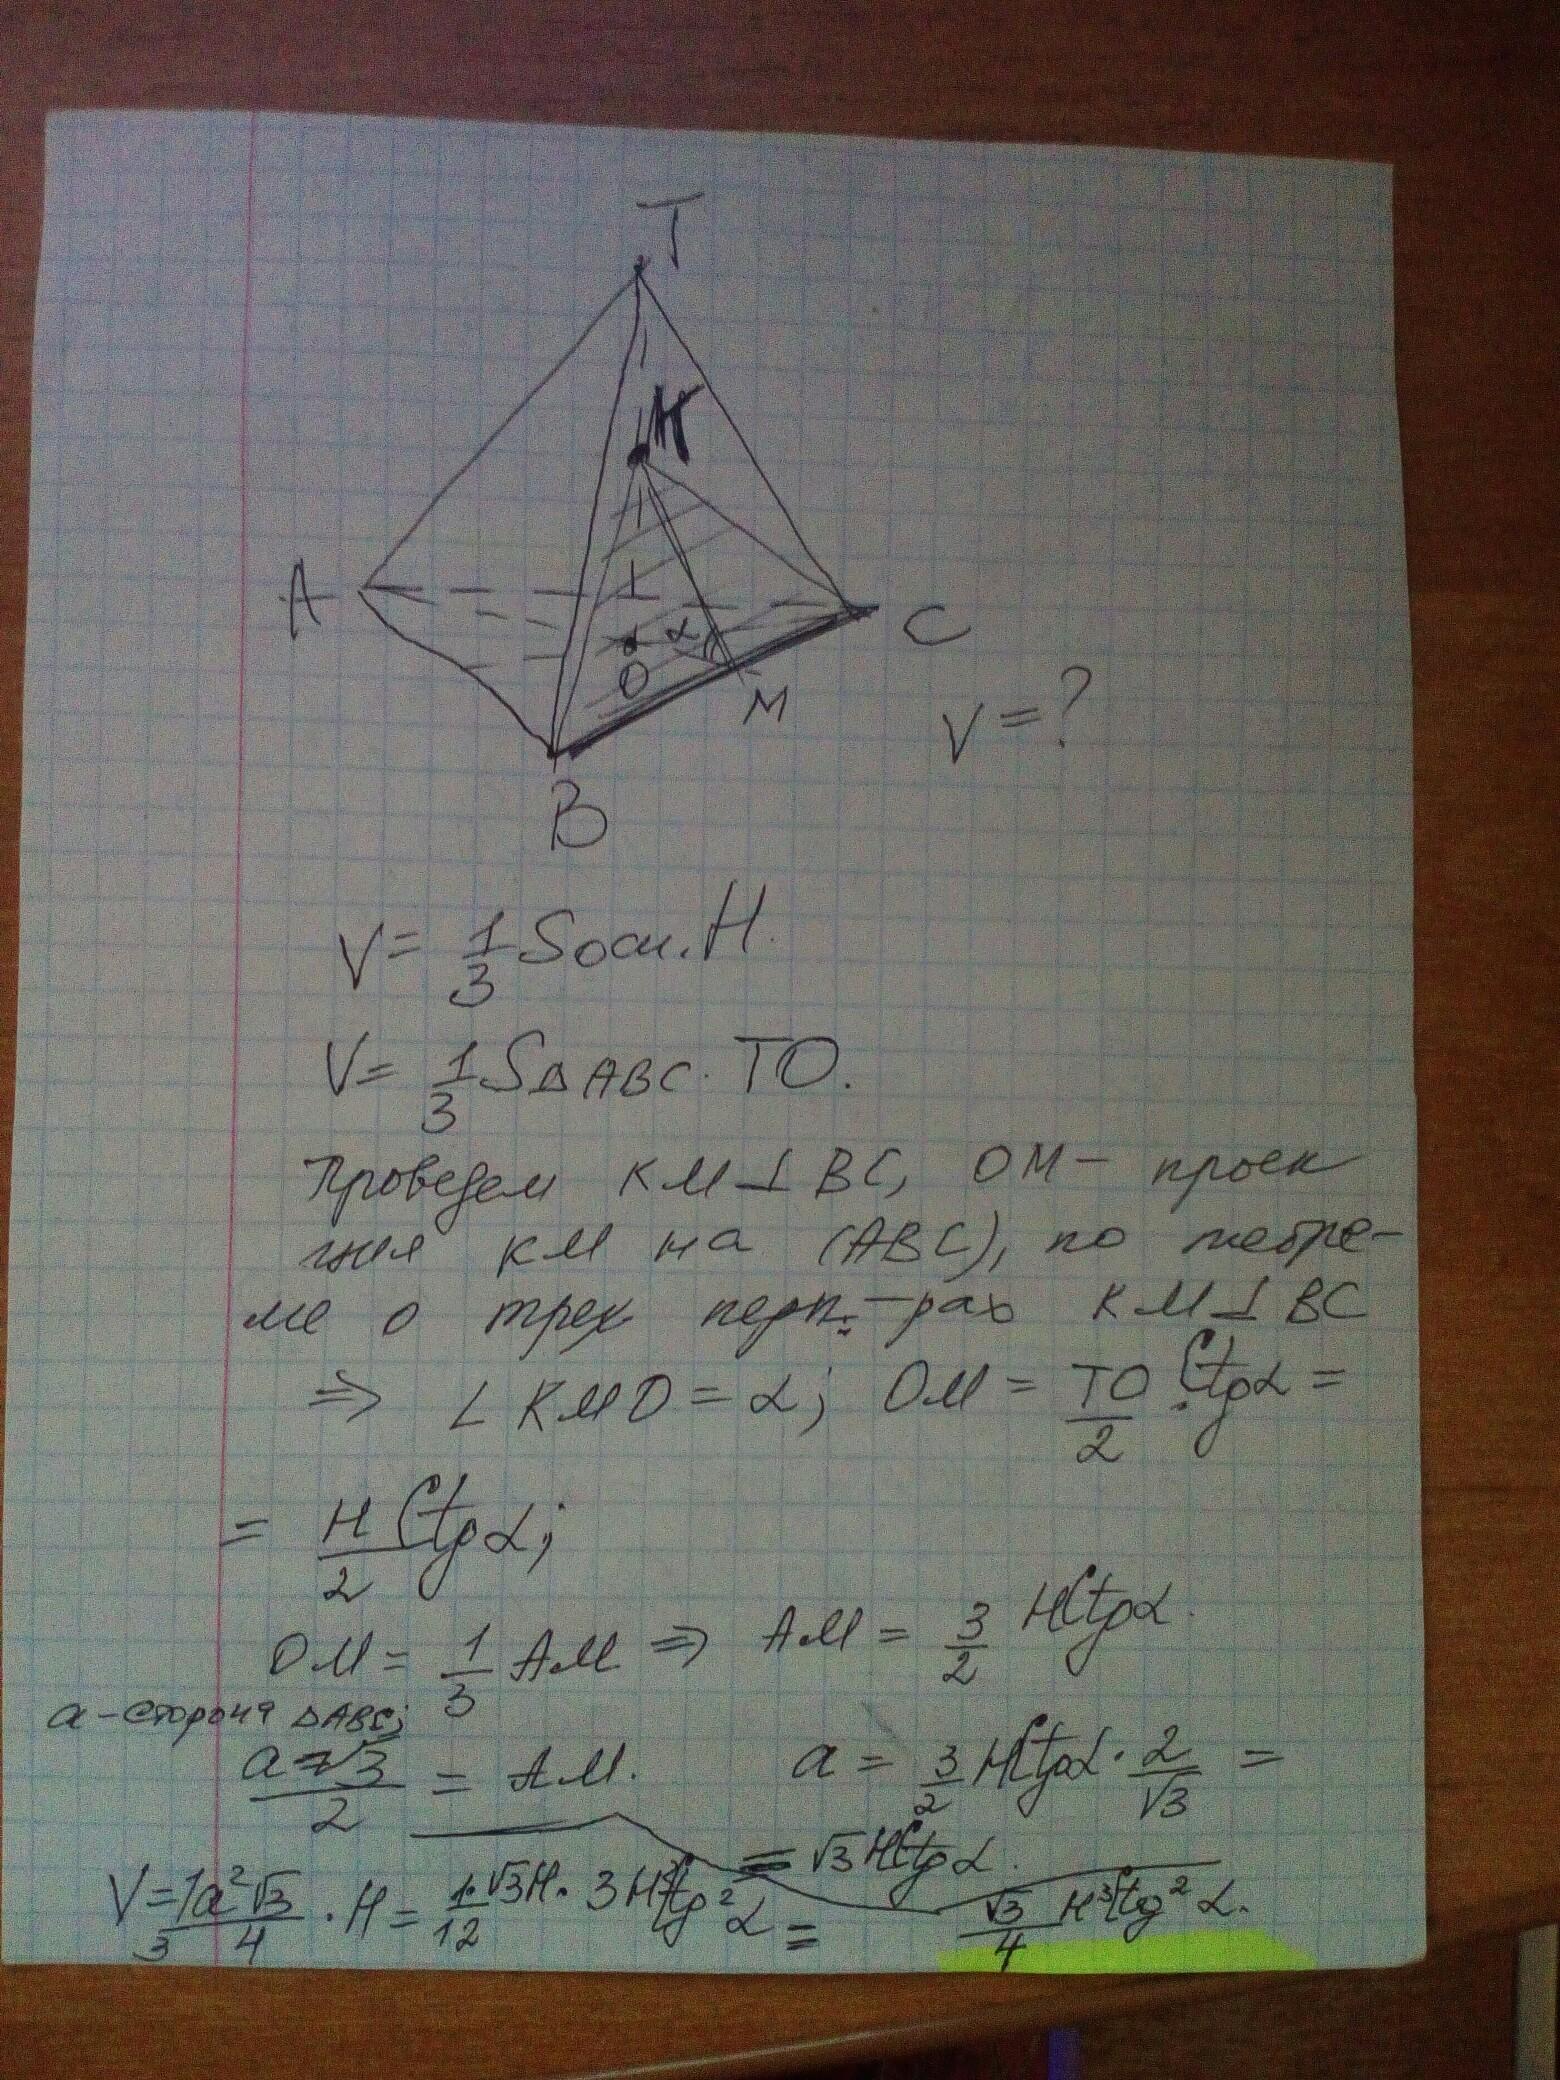 T
K
A
α
O
C
M
V = ?
B
V = 1/3 Sосн. H.
V = 1/3 S△ABC · TO.
Проведем KM⊥BC, OM – проек
ция KM на (ABC), по теоре-
ме о трех перп.-рах KM⊥BC
⇒ ∠KMO = α; OM = TO/2 · Ctgα =
= H/2 Ctgα;
OM = 1/3 AM ⇒ AM = 3/2 HCtgα.
a – сторона △ABC;
a√3/2 = AM. a = 3/2 HCtgα · 2/√3 =
= √3 HCtgα.
V = 1/3 a²√3/4 · H = 1/12 · √3H · 3H²Ctg²α = √3/4 H³Ctg²α.